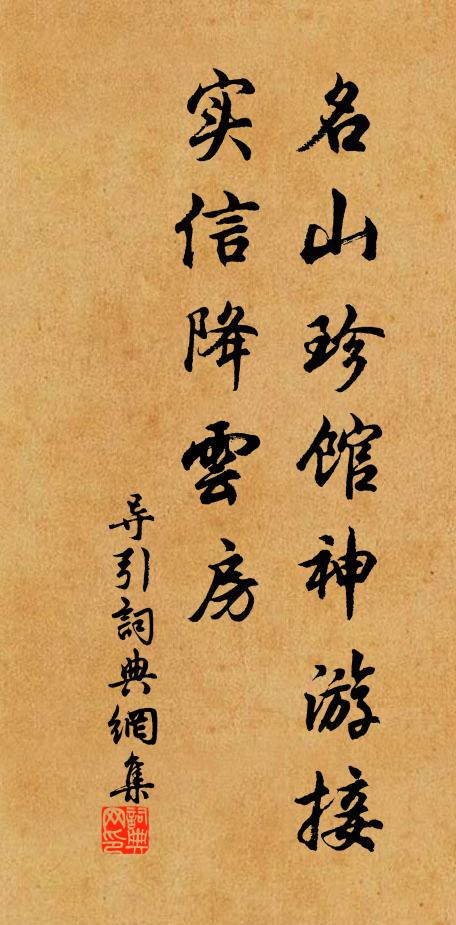 名山珍馆神游接
实信降雲房
导引詞典網集
詞典网印